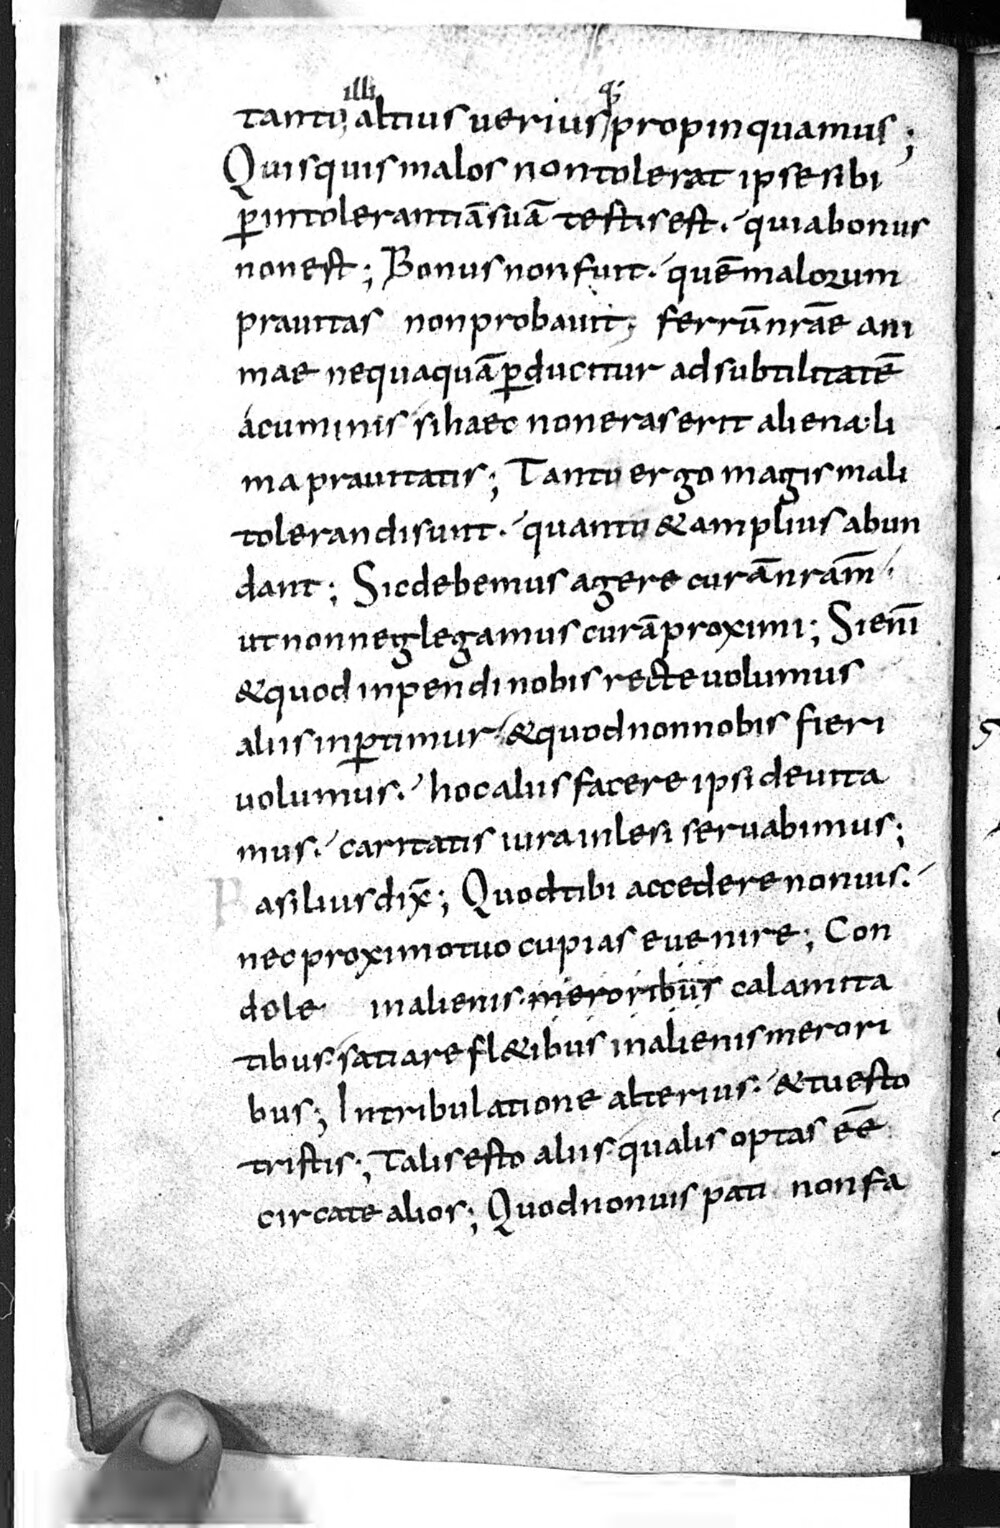 tanto illi altius uerius q; propinquamus;
Quisquis malos non tolerat ipse sibi
ꝑ intolerantiā suā testis est. quia bonus
non est; Bonus non fuit. quē malorum
prauitas non probauit; ferrū nrāe ani
mae nequaquā ꝑducitur ad subtilitatē
acuminis si haec non eraserit aliena li
ma prauitatis; Tanto ergo magis mali
tolerandi sunt. quanto & amplius abun
dant; Sic debemus agere curā nrām.
ut non neglegamus curā proximi; Si enī
& quod inpendi nobis recte uolumus
aliis inꝑtimur & quod non nobis fieri
uolumus. hoc aliis facere ipsi deuita
mus. caritatis iura inlesi seruabimus;
Basilius dix̄; Quod tibi accedere non uis.
nec proximo tuo cupias euenire; Con
dole in alienis meroribus calamita
tibus. satiare fl&ibus in alienis merori
bus; In tribulatione alterius. & tu esto
tristis; Talis esto aliis qualis optas eē
circa te alios; Quod non uis pati non fa